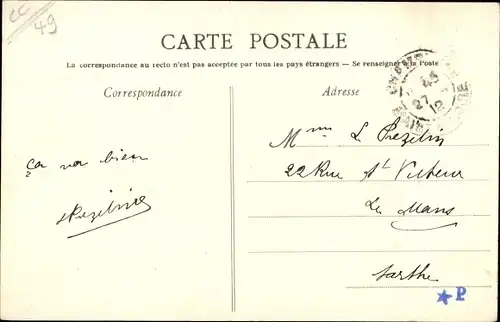 CC
49
CARTE POSTALE
La correspondance au recto n'est pas acceptée par tous les pays étrangers. — Se renseigner à la Poste
Correspondance
Adresse
27
12
Mme
22 Rue St Victeur
Le Mans
Sarthe
ça va bien
★P